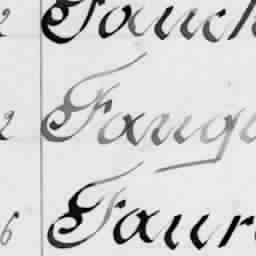 2 Fauch
2 Faugu
6 Faur